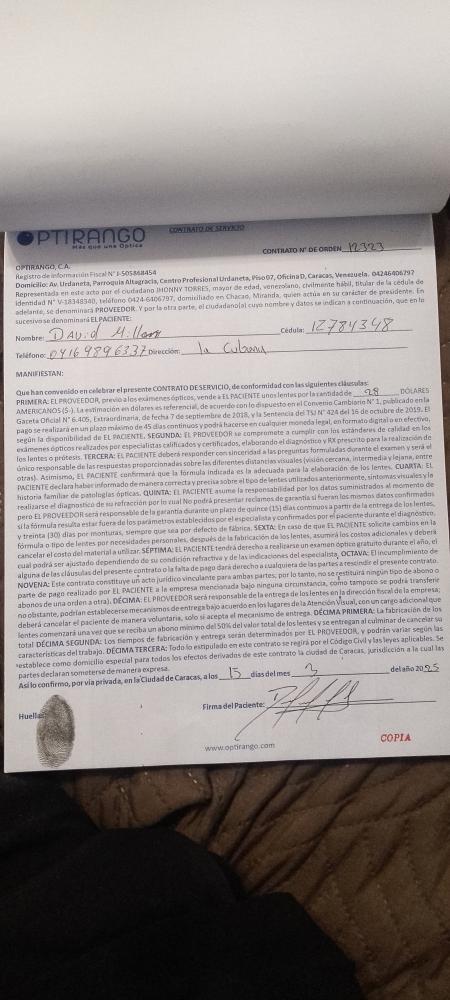 OPTIRANGO
Más que una Óptica
CONTRATO DE SERVICIO
CONTRATO N° DE ORDEN 12323
OPTIRANGO, C.A.
Registro de Información Fiscal N° J-505868454
Domicilio: Av. Urdaneta, Parroquia Altagracia, Centro Profesional Urdaneta, Piso 07, Oficina D, Caracas, Venezuela. 04246406797
Representada en este acto por el ciudadano JHONNY TORRES, mayor de edad, venezolano, civilmente hábil, titular de la cédula de
identidad N° V-18348340, teléfono 0424-6406797, domiciliado en Chacao, Miranda, quien actúa en su carácter de presidente. En
adelante, se denominará PROVEEDOR. Y por la otra parte, el ciudadano(a) cuyo nombre y datos se indican a continuación, que en lo
sucesivo se denominará EL PACIENTE:
Nombre: David Millan Cédula: 12784348
Teléfono: 04169896337 Dirección: la Cubana
MANIFIESTAN:
Que han convenido en celebrar el presente CONTRATO DE SERVICIO, de conformidad con las siguientes cláusulas:
PRIMERA: EL PROVEEDOR, previo a los exámenes ópticos, vende a EL PACIENTE unos lentes por la cantidad de 28 DÓLARES
AMERICANOS ($-). La estimación en dólares es referencial, de acuerdo con lo dispuesto en el Convenio Cambiario N° 1, publicado en la
Gaceta Oficial N° 6.405, Extraordinaria, de fecha 7 de septiembre de 2018, y la Sentencia del TSJ N° 424 del 16 de octubre de 2019. El
pago se realizará en un plazo máximo de 45 días continuos y podrá hacerse en cualquier moneda legal, en formato digital o en efectivo,
según la disponibilidad de EL PACIENTE. SEGUNDA: EL PROVEEDOR se compromete a cumplir con los estándares de calidad en los
exámenes ópticos realizados por especialistas calificados y certificados, elaborando el diagnóstico y RX prescrito para la realización de
los lentes o prótesis. TERCERA: EL PACIENTE deberá responder con sinceridad a las preguntas formuladas durante el examen y será el
único responsable de las respuestas proporcionadas sobre las diferentes distancias visuales (visión cercana, intermedia y lejana, entre
otras). Asimismo, EL PACIENTE confirmará que la fórmula indicada es la adecuada para la elaboración de los lentes. CUARTA: EL
PACIENTE declara haber informado de manera correcta y precisa sobre el tipo de lentes utilizados anteriormente, síntomas visuales y la
historia familiar de patologías ópticas. QUINTA: EL PACIENTE asume la responsabilidad por los datos suministrados al momento de
realizarse el diagnostico de su refracción por lo cual No podrá presentar reclamos de garantía si fueran los mismos datos confirmados
pero EL PROVEEDOR será responsable de la garantía durante un plazo de quince (15) días continuos a partir de la entrega de los lentes,
y treinta (30) días por monturas, siempre que sea por defecto de fábrica. SEXTA: En caso de que EL PACIENTE solicite cambios en la
fórmula o tipo de lentes por necesidades personales, después de la fabricación de los lentes, asumirá los costos adicionales y deberá
cancelar el costo del material a utilizar. SÉPTIMA: EL PACIENTE tendrá derecho a realizarse un examen óptico gratuito durante el año, el
cual podrá ser ajustado dependiendo de su condición refractiva y de las indicaciones del especialista. OCTAVA: El incumplimiento de
alguna de las cláusulas del presente contrato o la falta de pago dará derecho a cualquiera de las partes a rescindir el presente contrato.
NOVENA: Este contrato constituye un acto jurídico vinculante para ambas partes; por lo tanto, no se restituirá ningún tipo de abono o
parte de pago realizado por EL PACIENTE a la empresa mencionada bajo ninguna circunstancia, como tampoco se podrá transferir
abonos de una orden a otra). DÉCIMA: EL PROVEEDOR será responsable de la entrega de los lentes en la dirección fiscal de la empresa;
no obstante, podrían establecerse mecanismos de entrega bajo acuerdo en los lugares de la Atención Visual, con un cargo adicional que
deberá cancelar el paciente de manera voluntaria, solo si acepta el mecanismo de entrega. DÉCIMA PRIMERA: La fabricación de los
lentes comenzará una vez que se reciba un abono mínimo del 50% del valor total de los lentes y se entregan al culminar de cancelar su
total DÉCIMA SEGUNDA: Los tiempos de fabricación y entrega serán determinados por EL PROVEEDOR, y podrán variar según las
características del trabajo. DÉCIMA TERCERA: Todo lo estipulado en este contrato se regirá por el Código Civil y las leyes aplicables. Se
establece como domicilio especial para todos los efectos derivados de este contrato la ciudad de Caracas, jurisdicción a la cual las
partes declaran someterse de manera expresa.
Así lo confirmo, por vía privada, en la Ciudad de Caracas, a los 15 días del mes 3 del año 2025
Huellas
Firma del Paciente:
www.optirango.com
COPIA